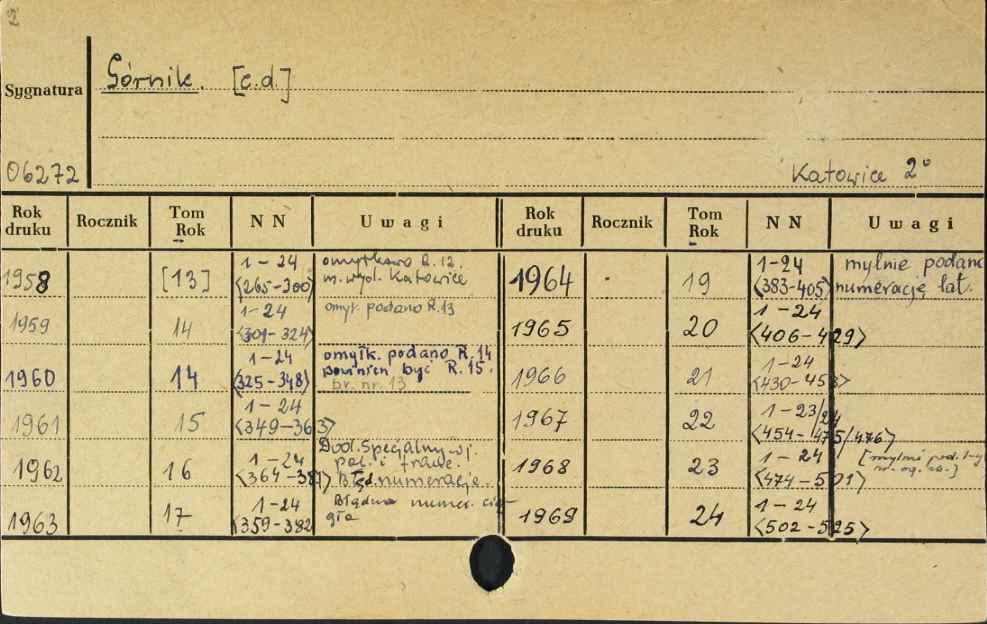 2
Górnik. [c.d.]
Sygnatura
06272
Katowice 2°
Rok druku Rocznik Tom Rok N N Uwagi Rok druku Rocznik Tom Rok N N Uwagi
1958 [13] 1-24 <265-300> omyłkowo R.12. m. wyd. Katowice
1959 14 1-24 <301-324> omył. podano R.13
1960 14 1-24 <325-348> omyłk. podano R.14 powinien być R.15. br. nr. 13
1961 15 1-24 <349-363>
1962 16 1-24 <364-387> Dod. Specjalny w j. pol. i franc. Błęd. numeracje.
1963 17 1-24 <359-382 Błędna numer. ciągła
1964 19 1-24 <383-405> mylnie podano numerację lat.
1965 20 1-24 <406-429>
1966 21 1-24 <430-453>
1967 22 1-23/24 <454-475/476>
1968 23 1-24 <474-501> [mylnie pod.
1969 24 1-24 <502-525>